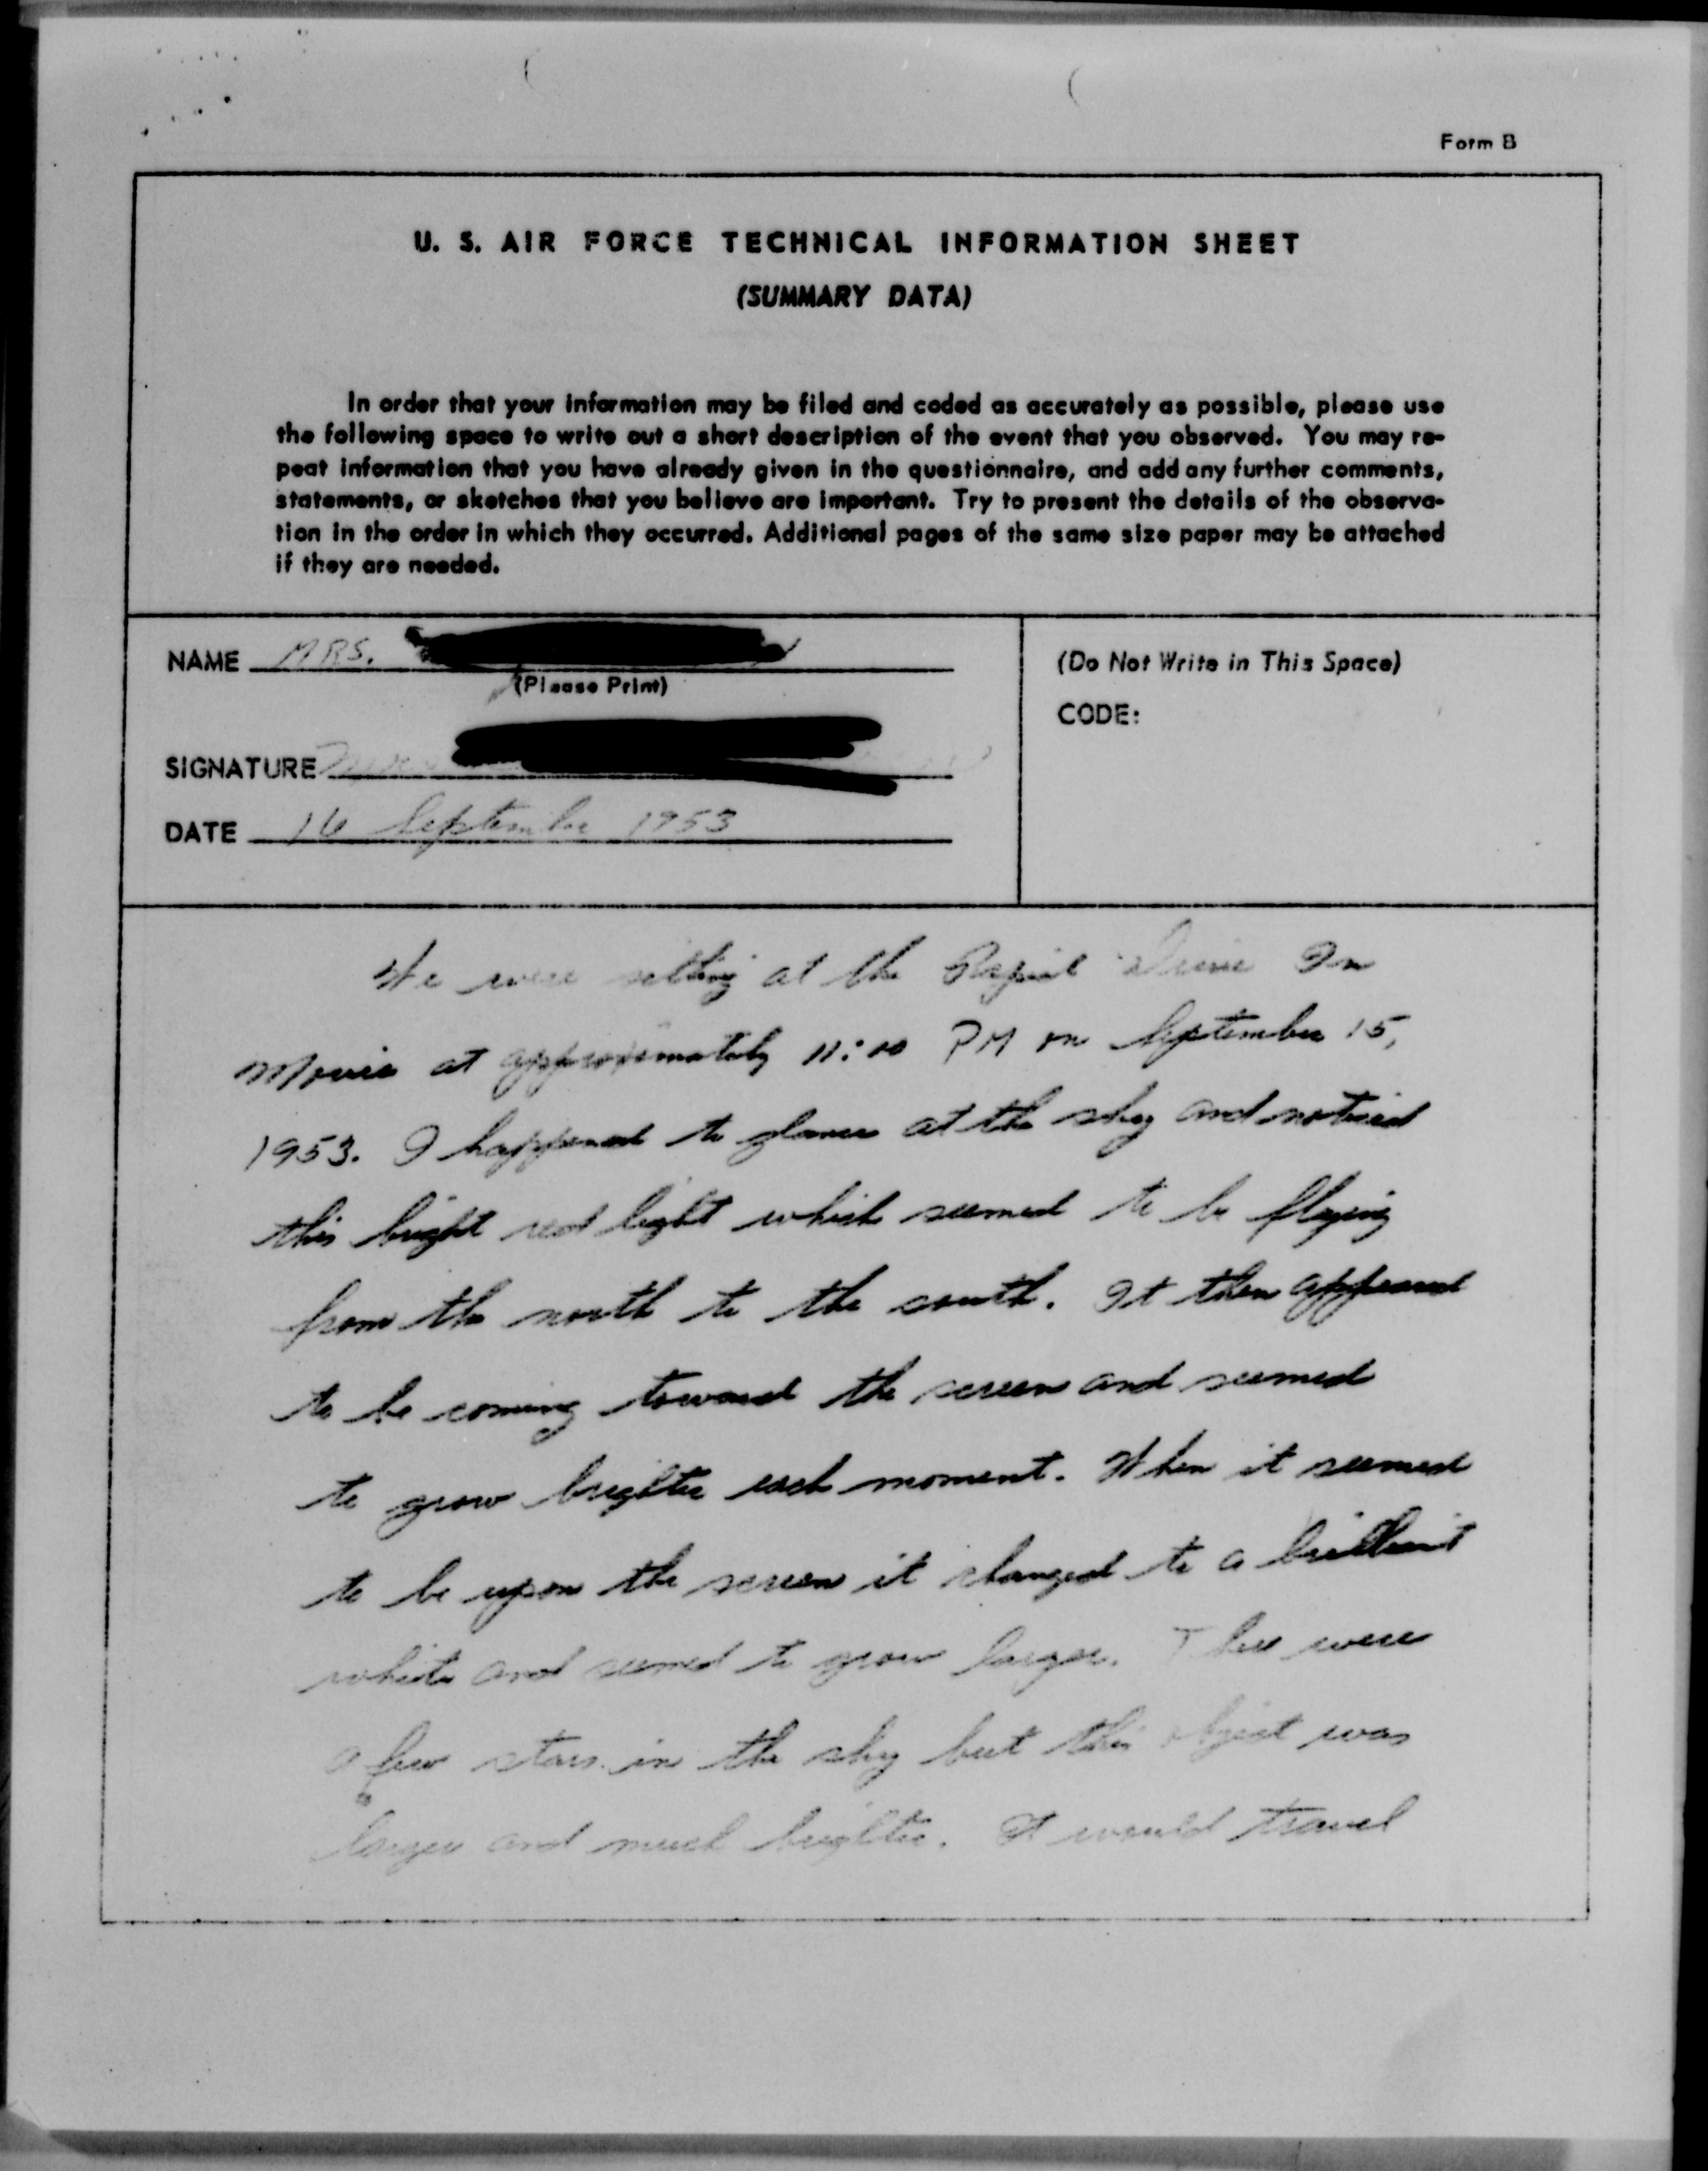 Form B
U. S. AIR FORCE TECHNICAL INFORMATION SHEET
(SUMMARY DATA)
In order that your information may be filed and coded as accurately as possible, please use
the following space to write out a short description of the event that you observed. You may re-
peat information that you have already given in the questionnaire, and add any further comments,
statements, or sketches that you believe are important. Try to present the details of the observa-
tion in the order in which they occurred. Additional pages of the same size paper may be attached
if they are needed.
NAME MRS.
(Please Print)
SIGNATURE
DATE 16 September 1953
(Do Not Write in This Space)
CODE:
We were sitting at the Drive In
Movie at approximately 11:00 PM on September 15,
1953. I happened to glance at the sky and noticed
this bright red light which seemed to be flying
from the north to the south. It then appeared
to be coming toward the screen and seemed
to grow brighter each moment. When it seemed
to be upon the screen it changed to a brilliant
white and seemed to grow larger. There were
a few stars in the sky but this object was
larger and much brighter. It would travel